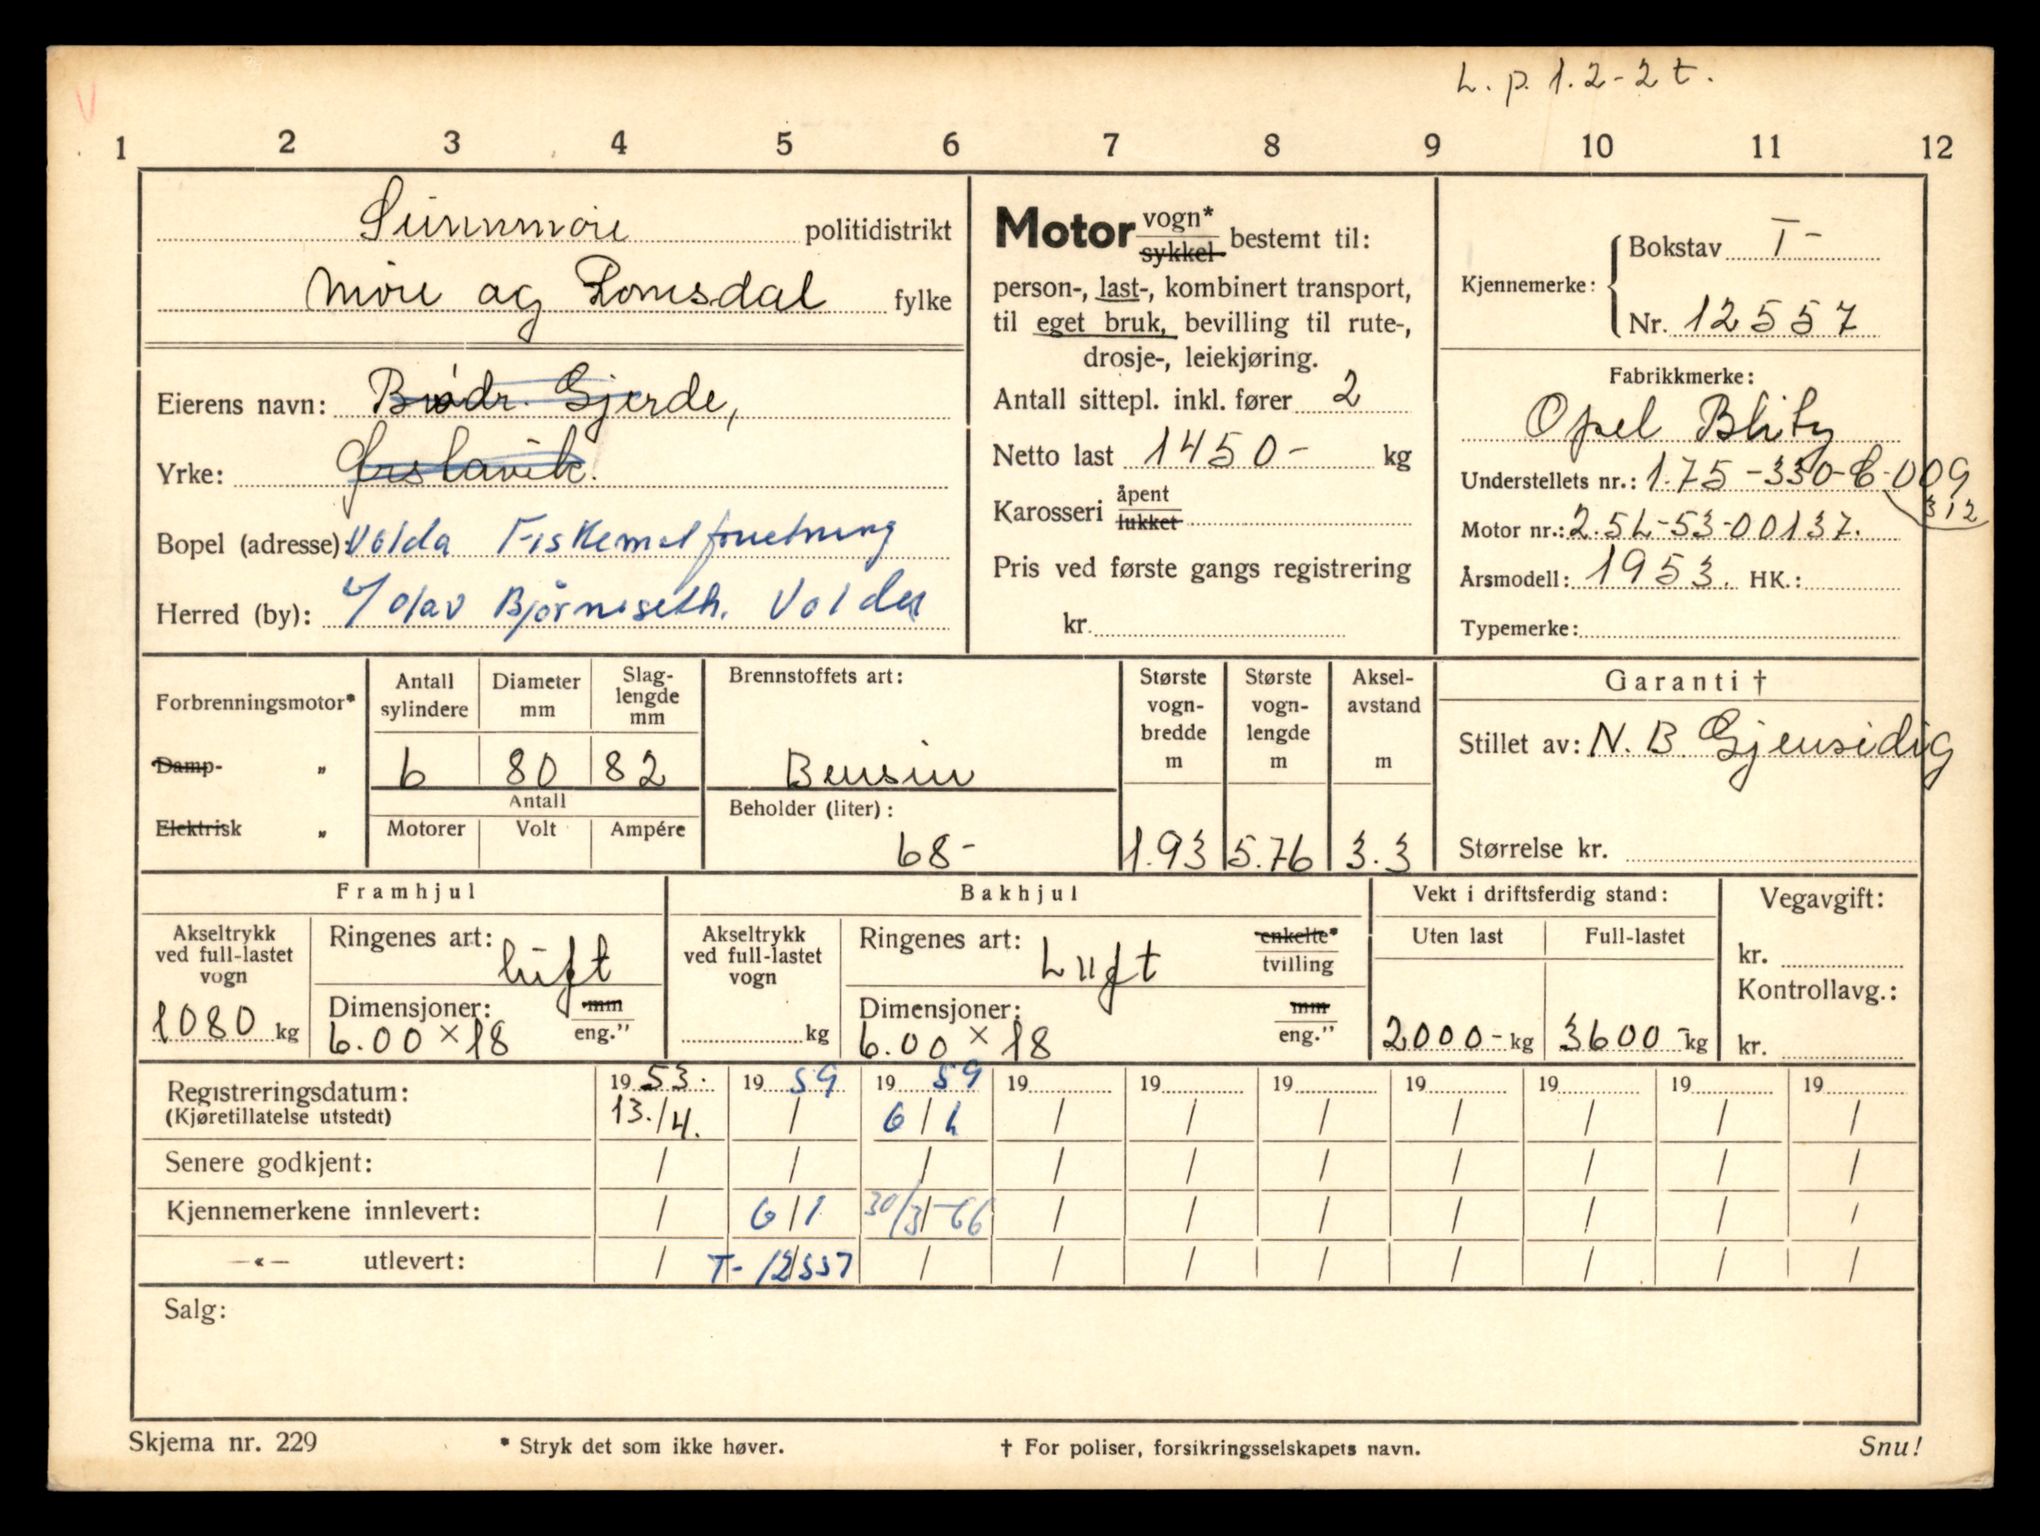 V
L. p. 1.2-2 t.
1 2 3 4 5 6 7 8 9 10 11 12
Sunnmøre politidistrikt
Møre og Romsdal fylke
Eierens navn: Brødr. Gjerde,
Yrke: Ørstavik.
Bopel (adresse): Volda Fiskematforretning
Herred (by): v/ Olav Bjørneseth. Volda
Motor vogn* sykkel bestemt til:
person-, last-, kombinert transport,
til eget bruk, bevilling til rute-,
drosje-, leiekjøring.
Antall sittepl. inkl. fører 2
Netto last 1450- kg
Karosseri åpent lukket
Pris ved første gangs registrering
kr.
Kjennemerke: Bokstav T-
Nr. 12557
Fabrikkmerke:
Opel Blitz
Understellets nr.: 1.75-330-6-009
312
Motor nr.: 2.5L-53-00137.
Årsmodell: 1953. HK.:
Typemerke:
Forbrenningsmotor*
Damp- „
Elektrisk „
Antall sylindere
6
Diameter mm
80
Slag-lengde mm
82
Antall
Motorer Volt Ampére
Brennstoffets art:
Bensin
Beholder (liter):
68-
Største vogn-bredde m
1.93
Største vogn-lengde m
5.76
Aksel-avstand m
3.3
Garanti †
Stillet av: N. B. Gjensidig
Størrelse kr.
Framhjul
Akseltrykk ved full-lastet vogn
1080 kg
Ringenes art: luft
Dimensjoner: mm eng.”
6.00 x 18
Bakhjul
Akseltrykk ved full-lastet vogn
kg
Ringenes art: Luft enkelte* tvilling
Dimensjoner: mm eng.”
6.00 x 18
Vekt i driftsferdig stand:
Uten last Full-lastet
2000- kg 3600- kg
Vegavgift:
kr.
Kontrollavg.:
kr.
Registreringsdatum: 19 53. 19 59 19 59 19 19 19 19 19 19 19
(Kjøretillatelse utstedt) 13./4. / 6/ / / / / / / /
Senere godkjent: / / / / / / / / / /
Kjennemerkene innlevert: / 6/1 30/3-66 / / / / / / /
—«— utlevert: / T-12557 / / / / / / / /
Salg:
Skjema nr. 229 * Stryk det som ikke høver. † For poliser, forsikringsselskapets navn. Snu!